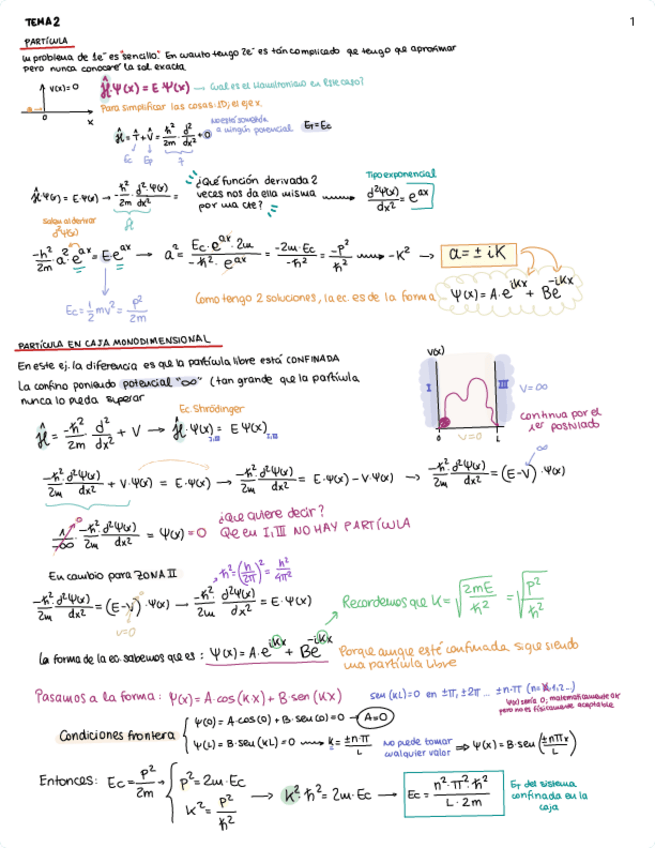 TEMA 2
1
PARTÍCULA
Un problema de 1e⁻ es "sencillo". En cuanto tengo 2e⁻ es tan complicado que tengo que aproximar
pero nunca conoceré la sol. exacta
V(x)=0
Ĥ·Ψ(x) = E Ψ(x) → Cual es el Hamiltoniano en este caso?
Para simplificar las cosas: 1D, el eje x.
0 x
Ĥ = T̂ + V̂ = ħ²/2m · d²/dx² + 0
No está sometida a ningún potencial E_T = Ec
Ec Ep
Ĥ·Ψ(x) = E·Ψ(x) → -ħ²/2m · d²·Ψ(x)/dx² =
¿Qué función derivada 2
veces nos da ella misma
por una cte?
Tipo exponencial
d²Ψ(x)/dx² = e^ax
Salen al derivar
d²Ψ(x)
-ħ²/2m · a²·e^ax = E·e^ax → a² = Ec·e^ax·2m / -ħ²·e^ax = -2m·Ec/-ħ² = -p²/ħ² → -K² → a = ± iK
Ec = ½mv² = p²/2m
Como tengo 2 soluciones, la ec. es de la forma Ψ(x) = A·e^iKx + Be^-iKx
PARTÍCULA EN CAJA MONODIMENSIONAL
En este ej. la diferencia es que la partícula libre está CONFINADA
La confino poniendo potencial "∞" (tan grande que la partícula
nunca lo pueda superar
V(x)
I III V=∞
0 V=0 L
continua por el
1er postulado
Ec. Shrödinger
Ĥ = -ħ²/2m · d²/dx² + V → Ĥ·Ψ(x) = E Ψ(x)
I,III I,III
-ħ²·d²Ψ(x)/2m dx² + V·Ψ(x) = E·Ψ(x) → -ħ²d²Ψ(x)/2m dx² = E·Ψ(x) - V·Ψ(x) → -ħ²·d²Ψ(x)/2m dx² = (E-V)·Ψ(x)
∞
1/-∞ · -ħ²·d²Ψ(x)/2m dx² = Ψ(x) = 0
0
¿Que quiere decir?
Que en I, III NO HAY PARTÍCULA
En cambio para ZONA II
ħ² = (h/2π)² = h²/4π²
-ħ²·d²Ψ(x)/2m dx² = (E-V)·Ψ(x) → -ħ²·d²Ψ(x)/2m dx² = E·Ψ(x)
V=0
Recordemos que K = √(2mE/ħ²) = √(p²/ħ²)
La forma de la ec. sabemos que es: Ψ(x) = A·e^iKx + Be^-iKx
Porque aunque esté confinada sigue siendo
una partícula libre
Pasamos a la forma: Ψ(x) = A·cos(Kx) + B·sen(Kx)
sen(KL)=0 en ±π, ±2π ... ±n·π
Condiciones frontera
Ψ(0) = A·cos(0) + B·sen(0) = 0 → A=0
Ψ(L) = B·sen(KL) = 0 → k = ±n·π/L
No puede tomar
cualquier valor
⇒ Ψ(x) = B·sen(±nπx/L)
Entonces: Ec = p²/2m
p² = 2m·Ec
K² = p²/ħ²
→ K²·ħ² = 2m·Ec → Ec = n²·π²·ħ²/L·2m
E_T del sistema
confinada en la
caja